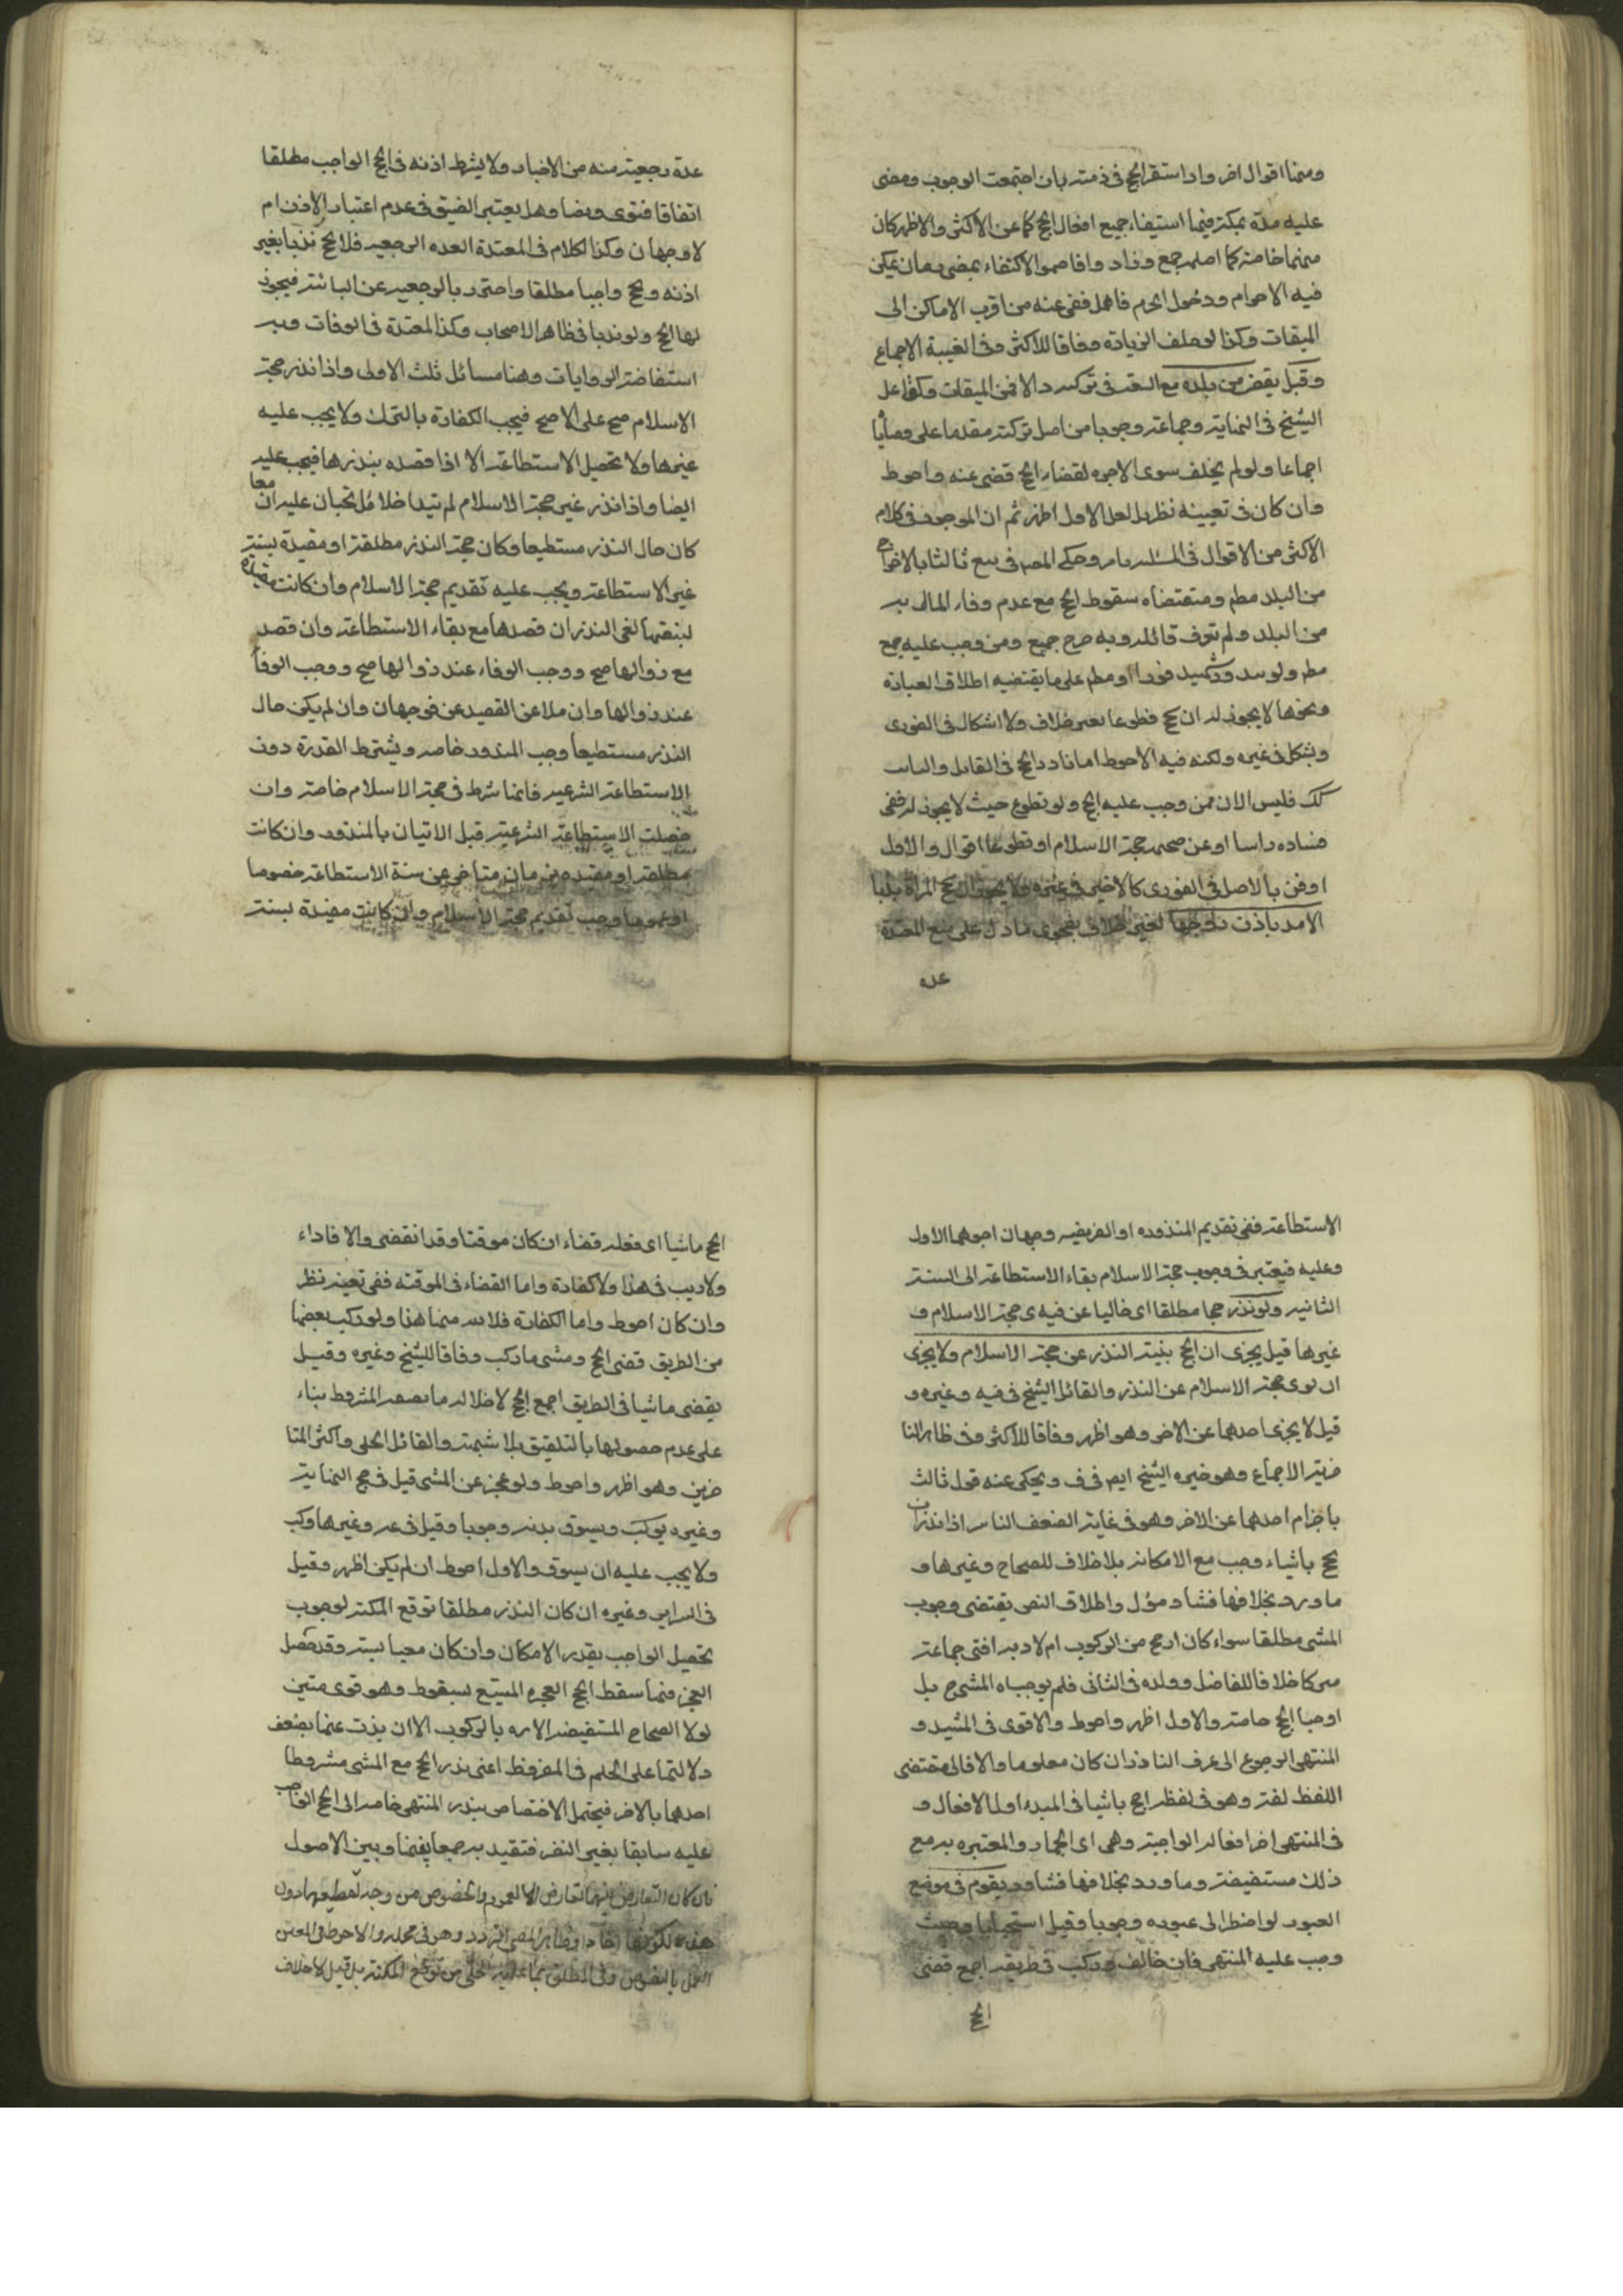 ومنها اقوال اخر واذا استقر الحج فى ذمته بان اجتمعت الوجوب ومضى
عليه مدة يمكنه فيها استيفاء جميع افعال الحج كما عن الاكثر والاظهر كان
منها خاصة كما اصله جمع وزاد واقاموا الاكتفاء بمضى زمان يمكن
فيه الاحرام ودخول الحرم فاهمل قضى عنه من اقرب الاماكن الى
الميقات وكذا لو خلف الزيادة وفاقا للاكثر وفى الغيبة الاجماع
وقيل يقضى من بلده مع السعة فى تركته والا فمن الميقات وكلها على
الشيخ فى النهاية وجماعة وجوبا من اصل تركته مقدما على وصايا
اجماعا ولو لم يخلف سوى الاجرة لقضاء الحج قضى عنه واحوط
وان كان فى تعيينه نظر بل لعل الاول اظهر ثم ان الموجود فى كلام
الاكثر من الاقوال فى المسئلة ما مر وحكى المص فى يع ثالثا بالاخراج
من البلد مطم ومقتضاه سقوط الحج مع عدم وفاء المال به
من البلد ولم نعرف قائله وبه صرح جميع ومن وجب عليه حج
مطم ولو بنذر وشبهه فورا او مطم على ما يقتضيه اطلاق العبارة
ونحوها لا يجوز له ان يحج تطوعا بغير خلاف ولا اشكال فى الفورى
ويشكل فى غيره ولكنه فيه الاحوط اما
كك فليس الان ممن وجب عليه الحج ولو تطوع حيث لا يجوز له ففى
فساده راسا او عن صحته حجة الاسلام او تطوعا اقوال والاول
اوفق بالاصل فى الفورى كالاخير فى غيره ولا يجوز ان تحج المراة ندبا
الا مد باذن زوجها بغير خلاف بفحوى ما دل على منع المعتدة
عدة
عدة رجعية منه من الاخبار ولا يشترط اذنه فى الحج الواجب مطلقا
اتفاقا فتوى ونصا وهل يعتبر الضيق فى عدم اعتبار الاذن ام
لا وجهان وكذا الكلام فى المعتدة العدة الرجعية فلا تحج ندبا بغير
اذنه وتحج واجبا مطلقا واحترز بالرجعية عن البائنة فيجوز
لها الحج ولو ندبا فى ظاهر الاصحاب وكذا المعتدة فى الوفات وبه
استفاضة الروايات وهنا مسائل ثلث الاولى واذا نذر حجة
الاسلام صح على الاصح فيجب الكفارة بالترك ولا يجب عليه
غيرها ولا تحصيل الاستطاعة الا اذا قصده بنذرها فيجب عليه
ايضا واذا نذر غير حجة الاسلام لم يتداخلا بل تجبان عليه معا ان
كان حال النذر مستطيعا وكان حجة النذر مطلقة او مقيدة بسنة
غير الاستطاعة ويجب عليه تقديم حجة الاسلام وان كانت مقيدة
بسنتها لغى النذر ان قصدها مع بقاء الاستطاعة وان قصد
مع زوالها صح ووجب الوفاء عند زوالها صح ووجب الوفا
عند زوالها وان خلا عن القصد عن فوجهان وان لم يكن حال
النذر مستطيعا وجب المنذور خاصه ويشترط القدرة دون
الاستطاعة الشرعية فانها شرط فى حجة الاسلام خاصة وان
حصلت الاستطاعة الشرعية قبل الاتيان بالمنذور وان كانت
مطلقة او مقيدة بزمان متاخر عن سنة الاستطاعة خصوصا
او عموما وجب تقديم حجة الاسلام وان كانت مقيدة بسنة
الاستطاعة ففى تقديم المنذورة او الفريضة وجهان اجودهما الاول
وعليه فيعتبر فى وجوب حجة الاسلام بقاء الاستطاعة الى السنة
الثانية ولو نذر حجا مطلقا اى خاليا عن قيدى حجة الاسلام و
غيرها قيل يجزى ان الحج بنية النذر عن حجة الاسلام ولا يجزى
ان نوى حجة الاسلام عن النذر والقائل الشيخ فى يه وغيره و
قيل لا يجزى احدهما عن الاخر وهو اظهر وفاقا للاكثر وفى ظاهر النا
صرية الاجماع وهو خيره الشيخ ايض فى ف ويحكى عنه قول ثالث
باجزاء احدهما عن الاخر وهو فى غاية الضعف الثانية اذا نذر ان
يحج ماشيا وجب مع الامكان بلا خلاف للصحاح وغيرها و
ما ورد بخلافها فشاذ مؤل واطلاق النص يقتضى وجوب
المشى مطلقا سواء كان ارجح من الركوب ام لا وبه افتى جماعة
خلافا للفاضل وولده فى الثانى فلم يوجباه المشى ح بل
اوجبا الحج خاصة والاول اظهر واحوط والاقوى فى المبدء و
المنتهى الرجوع الى عرف الناذر ان كان معلوما والا فالى مقتضى
اللفظ لغة وهو فى لفظ احج ماشيا فى المبدء اول الافعال و
فى المنتهى اخر افعاله الواجبة وهى اى الجمار والمعتبرة به مع
ذلك مستفيضة وما ورد بخلافها فشاذ ويقوم فى موضع
العبور لو اضطر الى عبوره وجوبا وقيل استحبابا وحيث
وجب عليه المنتهى فان خالف وركب فى طريقه اجمع قضى
الحج
الحج ماشيا اى فعله قضاء ان كان موقتا وقد انقضى والا فاداء
ولا ريب فى هذا ولا كفارة واما القضاء فى الموقته ففى تعينه نظر
وان كان احوط واما الكفارة فلابد منها هنا ولو ركب بعضها
من الطريق قضى الحج ومشى ما ركب وفاقا للشيخ وغيره وقيل
يقضى ماشيا فى الطريق اجمع الحج لاخلاله ما بصفة المشروط بناء
على عدم حصولها بالتلفيق بلا شبهة والقائل الحلى واكثر المتا
خرين وهو اظهر واحوط ولو عجز عن المشى قيل فى حج النهاية
وغيره يركب ويسوق بدنه وجوبا وقيل فى عد وغيرها يركب
ولا يجب عليه ان يسوق والاول احوط ان لم يكن اظهر وقيل
فى السراير وغيره ان كان النذر مطلقا توقع المكنة لوجوب
تحصيل الواجب بقدر الامكان وان كان معينا بسنة وقد حصل
العجز فيها سقط الحج العجزه المستتبع لسقوط وهو قوى متين
لولا الصحاح المستفيضه الامره بالركوب الا ان يذب عنها بضعف
دلالتها على الحكم فى المفروض اعنى نذر الحج مع المشى مشروطا
احدهما بالاخر فيحتمل الاختصاص بنذر المنتهى خاصه الى الحج الواجب
عليه سابقا بغير النذر فتقيد به جمعا بينها وبين الاصول
فان كان التعارض بينهما تعارض العموم والخصوص من وجه لقطعيتها دون
هذه لكونها احادا وظاهر المص التردد وهو فى محله والاحوط فى المعين
العمل بالنصوص وفى المطلق بما عليه الحلى من توقع المكنة بل قيل لا خلاف